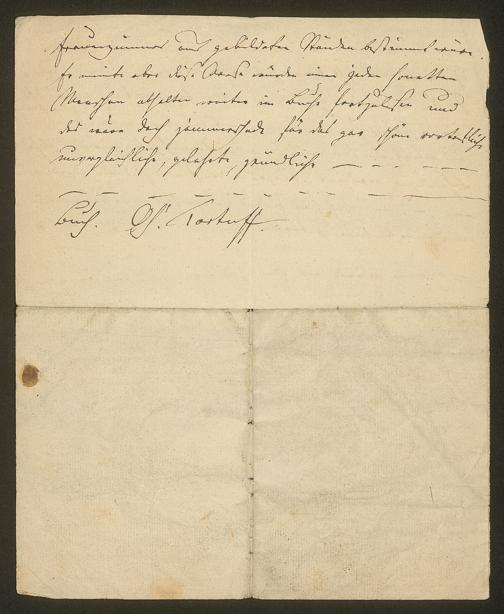 Frauenzimmer aus gebildeten Ständen bestimmt wäre.
Es müste aber diese Dame würden einen jeden honetten
Menschen abhalten weiter im Buche fortzulesen und
das wäre doch jammerschade für das gar schöne vortreffliche
unvergleichliche, gelehrte, gründliche — — — — —
— — — — — — — — —
Buch. Oh! Tartuff.